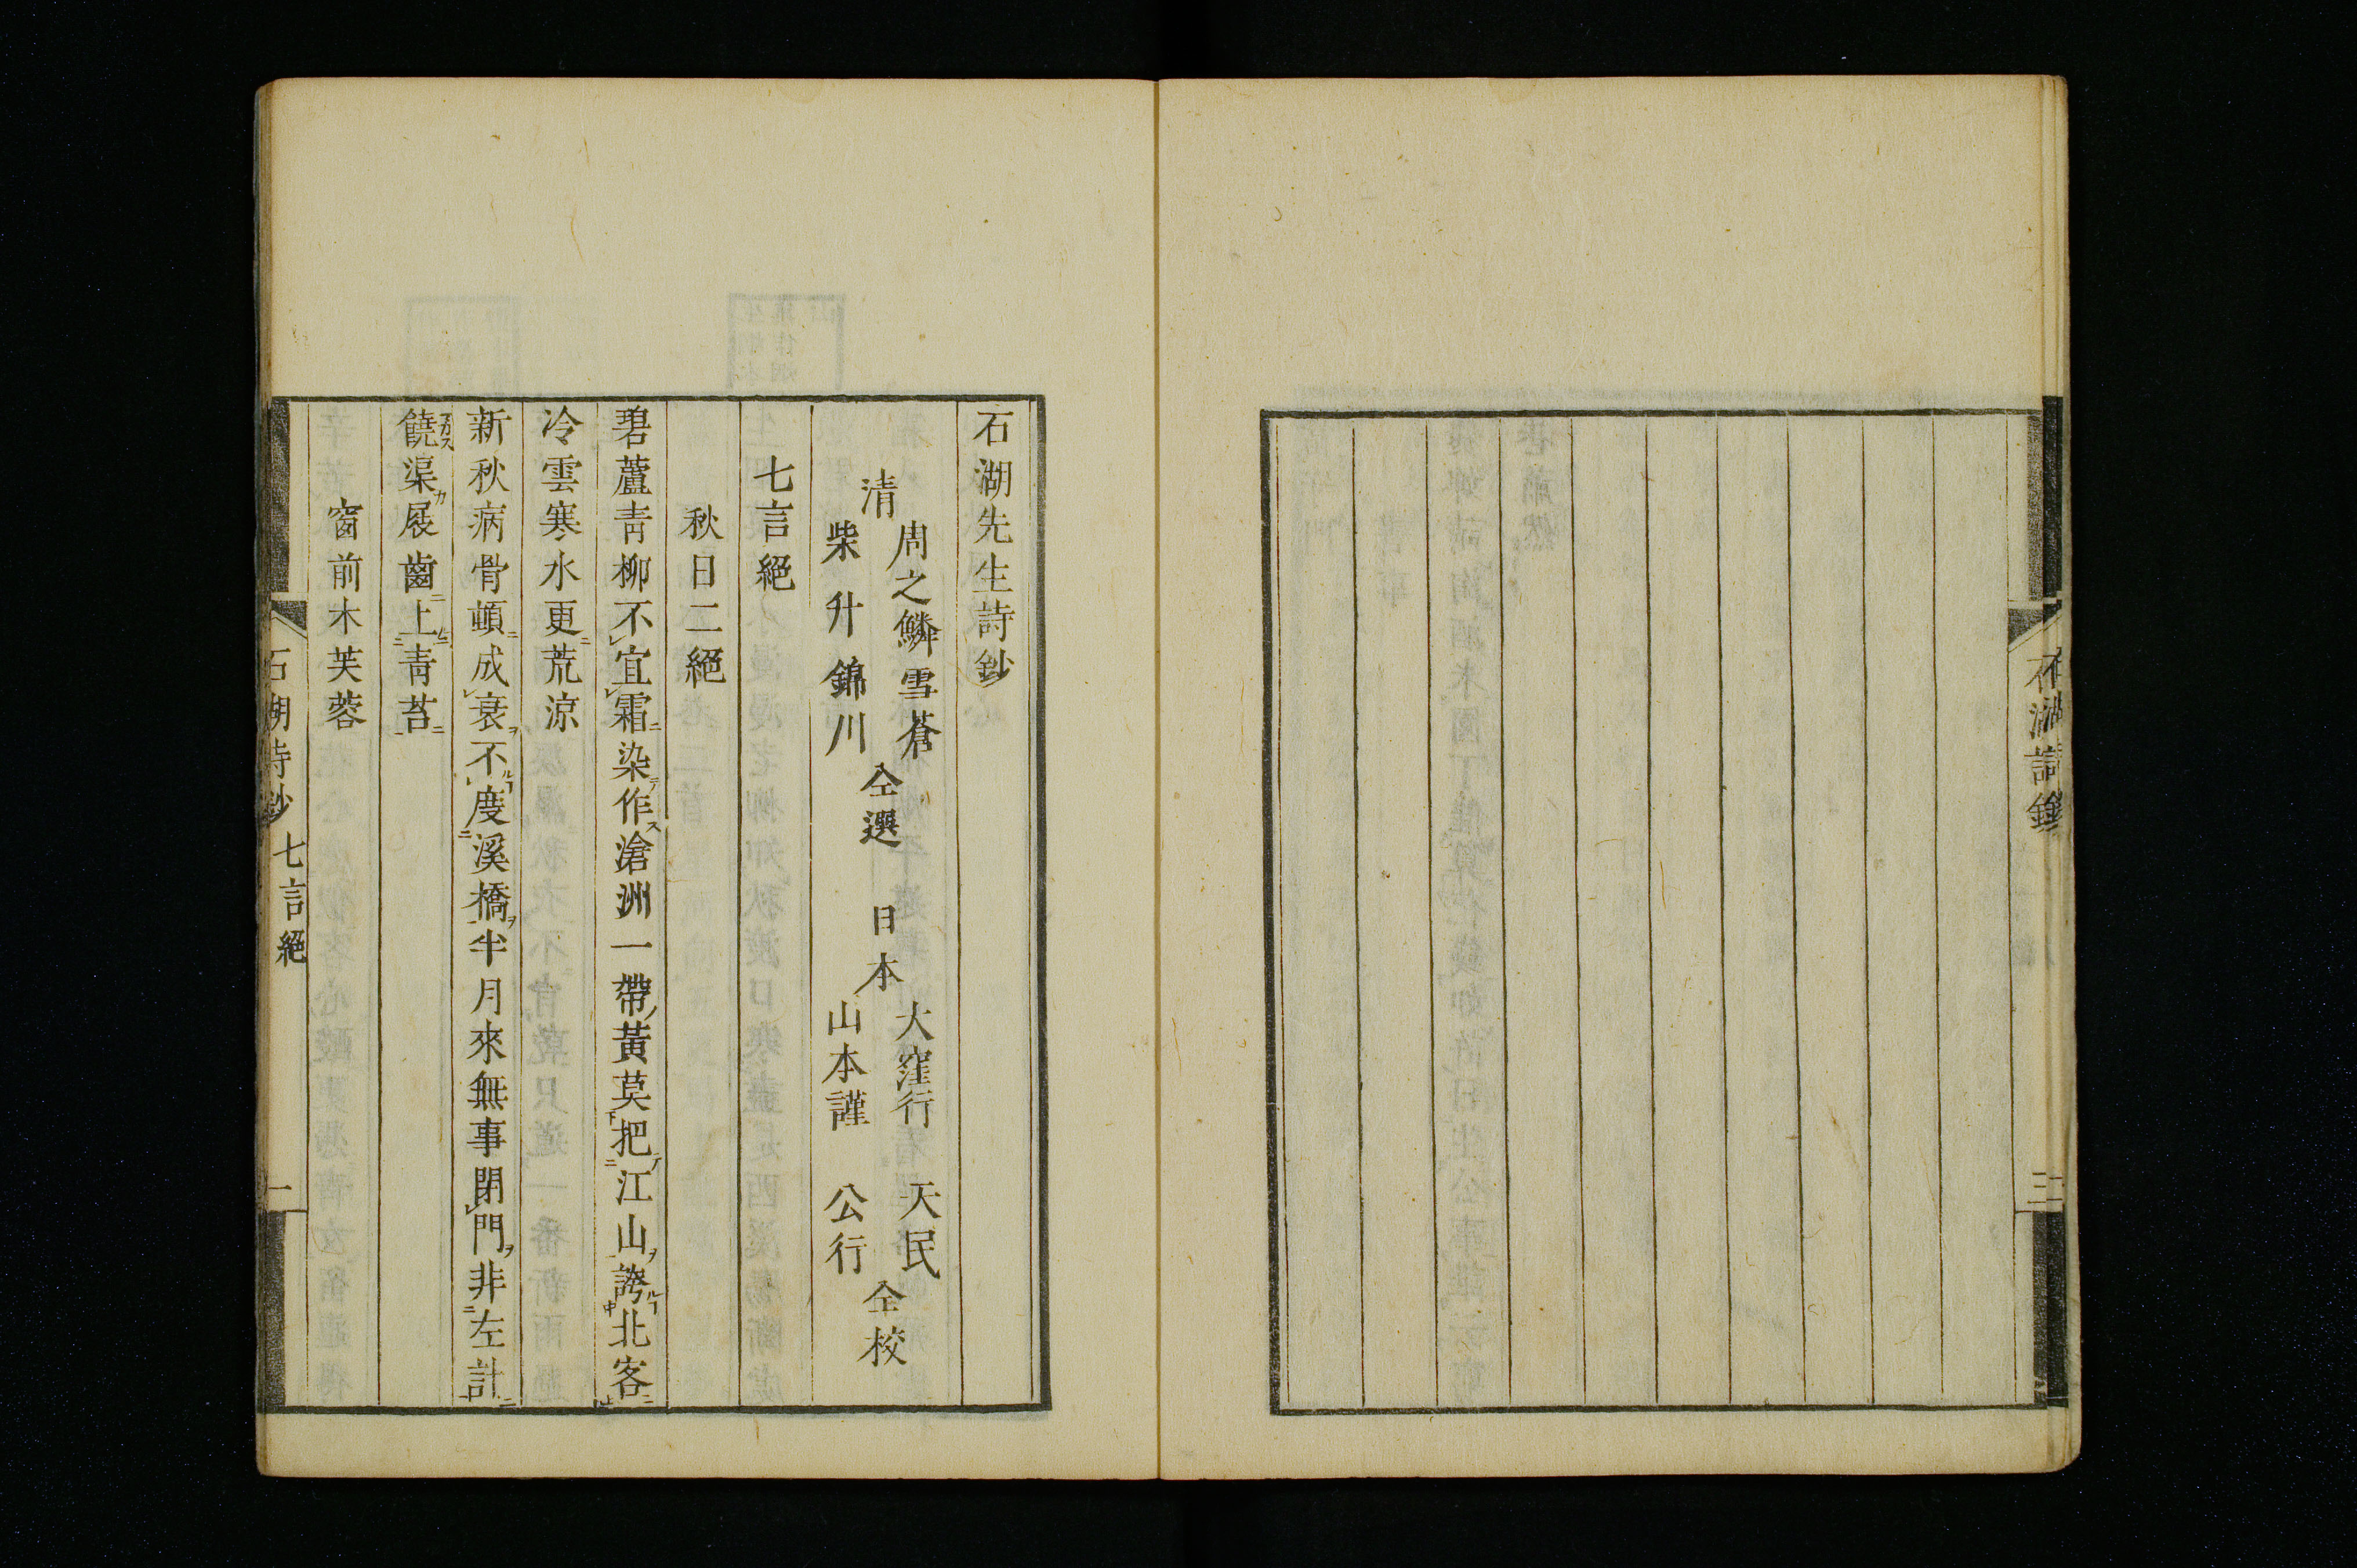 石湖詩鈔
三
石湖先生詩鈔
清
周之鱗雪蒼
柴升錦川
仝選
日本
大窪行天民
山本謹公行
仝校
七言絕
秋日二絕
碧蘆靑柳不宜霜染作滄洲一帶黃莫把江山誇北客
冷雲寒水更荒涼
新秋病骨頓成衰不度溪橋半月來無事閉門非左計
饒渠屐齒上靑苔
窗前木芙蓉
石湖詩鈔
七言絕
一